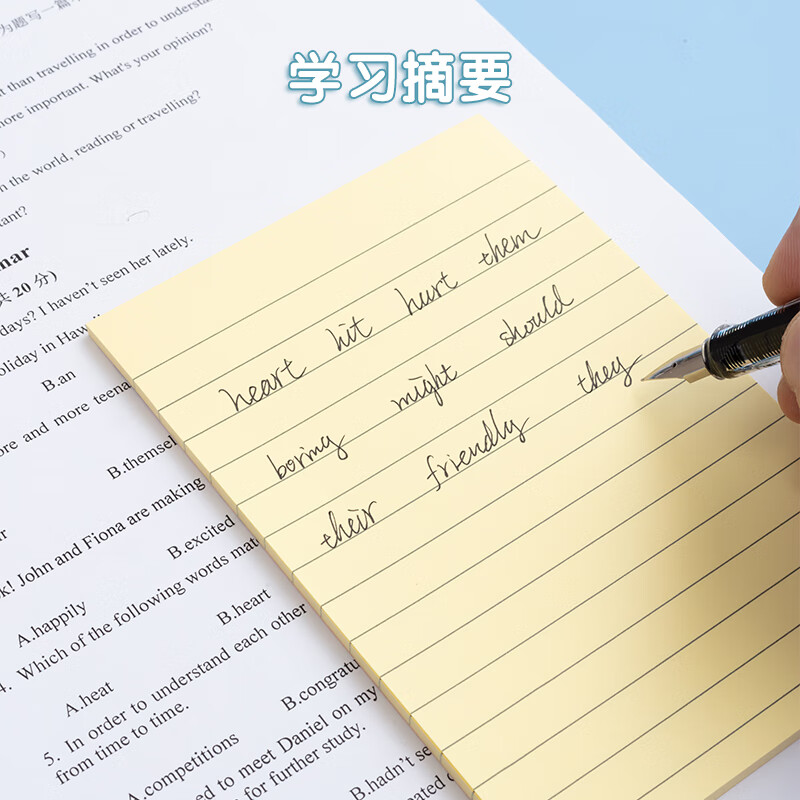 学习摘要
为题写一篇
t than travelling in order to understand
more important. What's your opinion?
n the world, reading or travelling?
tant?
nar
共20分)
days? I haven't seen her lately.
oliday in Hawaii
B.an
ore and more teena
B.themsel
ar
k! John and Fiona are making
B.excited
A.happily
4. Which of the following words mat
B.heart
A.heat
5. In order to understand each other
from time to time.
B.congratu
A.competitions
ed to meet Daniel on my
for further study.
B.hadn't se
eated c
heart hit hurt them
boring might should
their friendly they